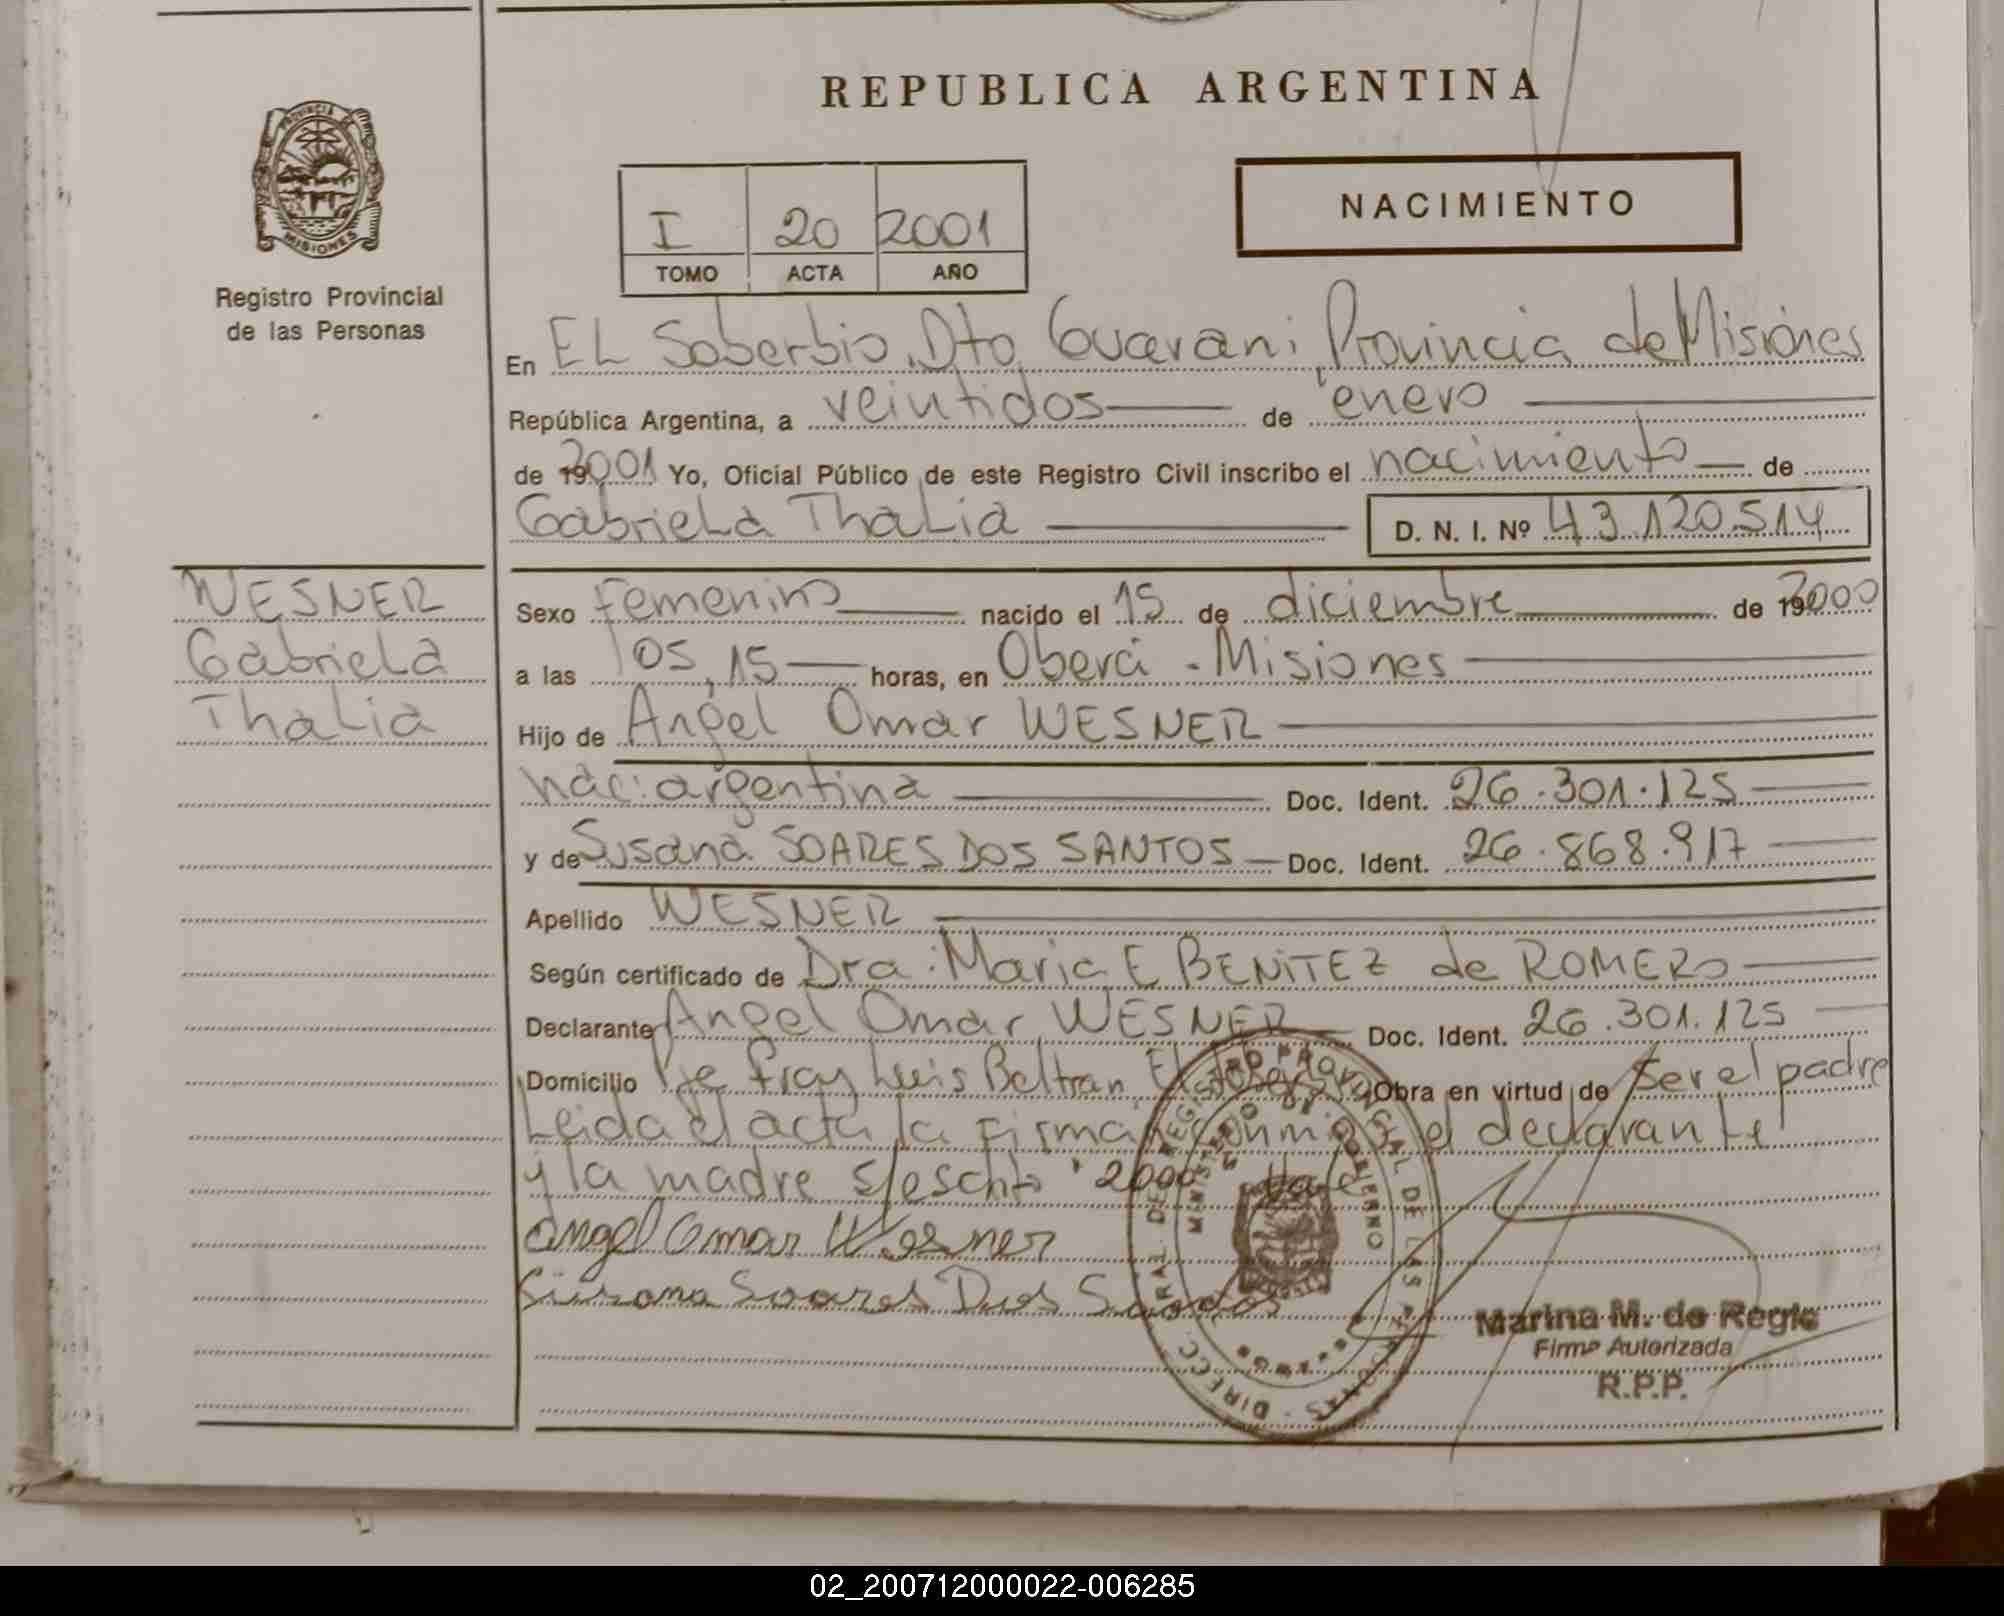 REPUBLICA ARGENTINA
PROVINCIA DE
MISIONES
Registro Provincial
de las Personas
I 20 2001
TOMO ACTA AÑO
NACIMIENTO
En EL Soberbio, Dto Guarani, Provincia de Misiones
República Argentina, a veintidos de enero
de 2001 Yo, Oficial Público de este Registro Civil inscribo el nacimiento de
Gabriela Thalia D. N. I. Nº 43.120.514
WESNER
Gabriela
Thalia
Sexo Femenino nacido el 15 de diciembre de 2000
a las 05,15 horas, en Oberá - Misiones
Hijo de Angel Omar WESNER
nac: argentina Doc. Ident. 26.301.125
y de Susana SOARES DOS SANTOS Doc. Ident. 26.868.917
Apellido WESNER
Según certificado de Dra. Maria E BENITEZ de ROMERO
Declarante Angel Omar WESNER Doc. Ident. 26.301.125
Domicilio Fray Luis Beltran, El Soberbio Obra en virtud de ser el padre
Leida el acta la firman conmigo el declarante
y la madre s/escrito "2000" Vale
Angel Omar Wesner
Susana Soares Dos Santos
DIRECC. GRAL. DEL REGISTRO PROVINCIAL DE LAS PERSONAS
MINISTERIO DE GOBIERNO
Marina M. de Regis
Firma Autorizada
R.P.P.
02_200712000022-006285